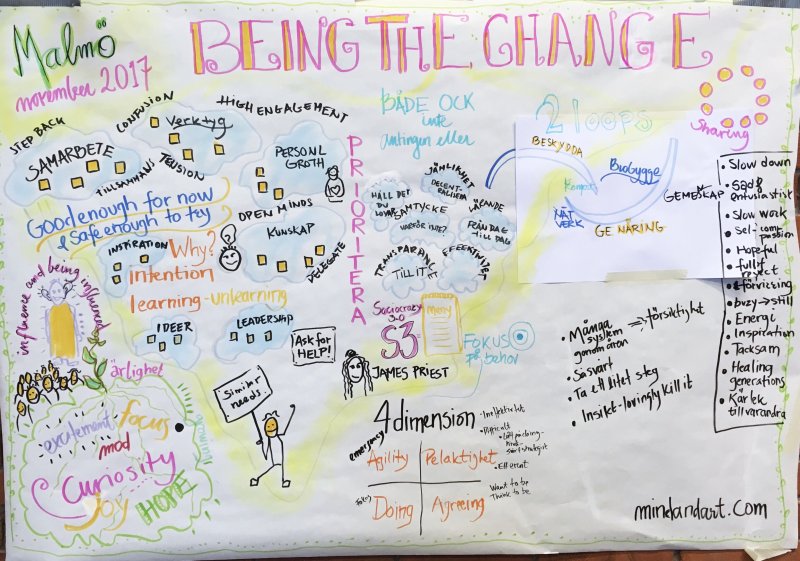 Malmö
november 2017
BEING THE CHANGE
STEP BACK
CONFUSION
HIGH ENGAGEMENT
SAMARBETE
Verktyg
TILLSAMMANS
TENSION
PERSONL
GROTH
Good enough for now
& Safe enough to try
OPEN MINDS
INSPIRATION
Why?
intention
learning-unlearning
KUNSKAP
DELEGATE
IDEER
LEADERSHIP
influence and being influenced
ärlighet
excitement
focus
mod
Curiosity
Joy
HOPE
Similar
needs
Ask for
HELP!
PRIORITERA
BÅDE OCK
inte
antingen eller
JÄMLIGHET
DECENT-
HÅLL DET
DU
SAMTYCKE
VARFÖR INTE?
FRÅN DAG
TILL DAG
TRANSPARANS
TILLIT
EFFEKTIVITET
Sociocracy
3.0
S3
meny
JAMES PRIEST
FOKUS
på
behov
4 dimension
emergency
Agility
Pelaktighet
Doing
Agreeing
• Ineffektivitet
• Difficult
• Efferent
Want to be
Think to be
2 loops
BESKYDDA
Brobygge
Kompost
NÄT
VERK
GE NÄRING
GEMESKAP
sharing
• Slow down
• Stöd &
entusiastisk
• Slow work
• Self-com-
passion
• Hopeful
• full of
respect
• förvirring
• buzy → still
• Energi
• Inspiration
• Tacksam
• Healing
generations
• Kärlek
till varandra
• Många
system
genom åren
⇒ försiktight
• Så svårt
• Ta ett litet steg
• Insikt - lovingly kill it
mindandart.com